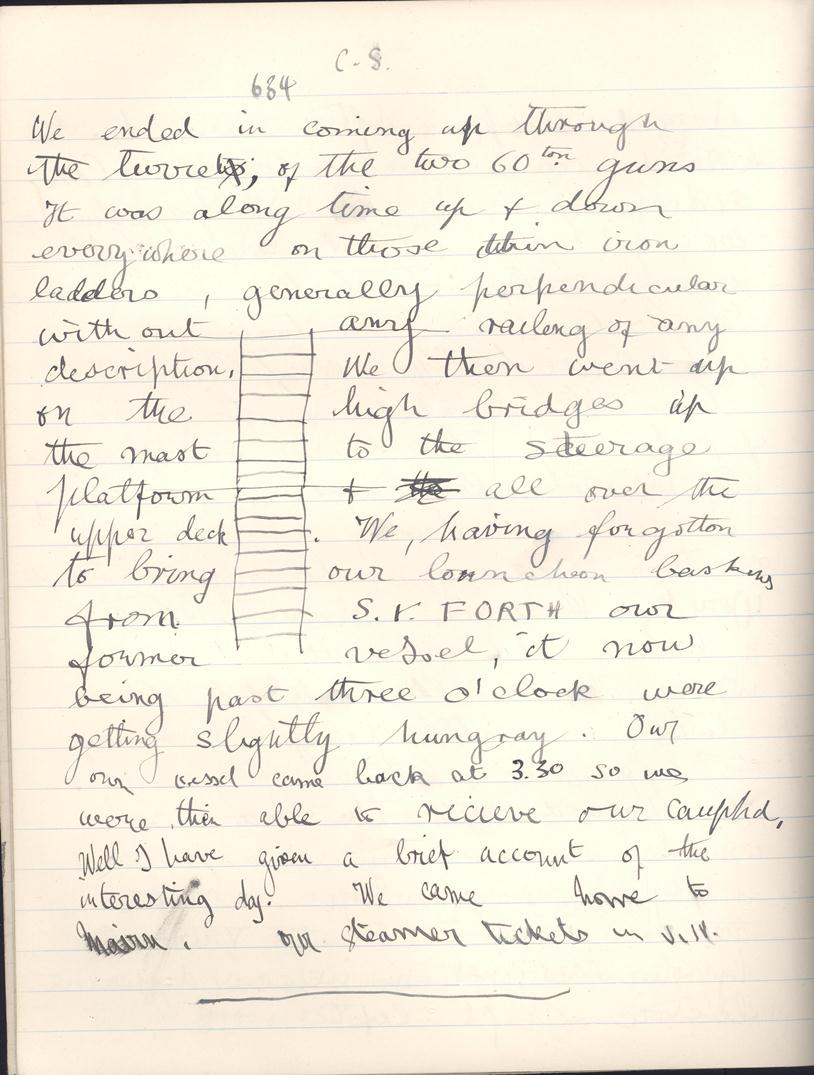 C-S.
634
We ended in coming up through
the turrets, of the two 60 ton guns
It was along time up & down
every where on those thin iron
ladders , generally perpendicular
with out any railing of any
description. We then went up
on the high bridges up
the mast to the steerage
platform & all over the
upper deck . We, having forgotton
to bring our louncheon baskets
from S.V. FORTH our
former vessel, it now
being past three o'clock were
getting slightly hungray. Our
our vessel came back at 3.30 so we
were then able to recieve our
Well I have given a brief account of the
interesting day. We came home to
Nairn. our steamer tickets in